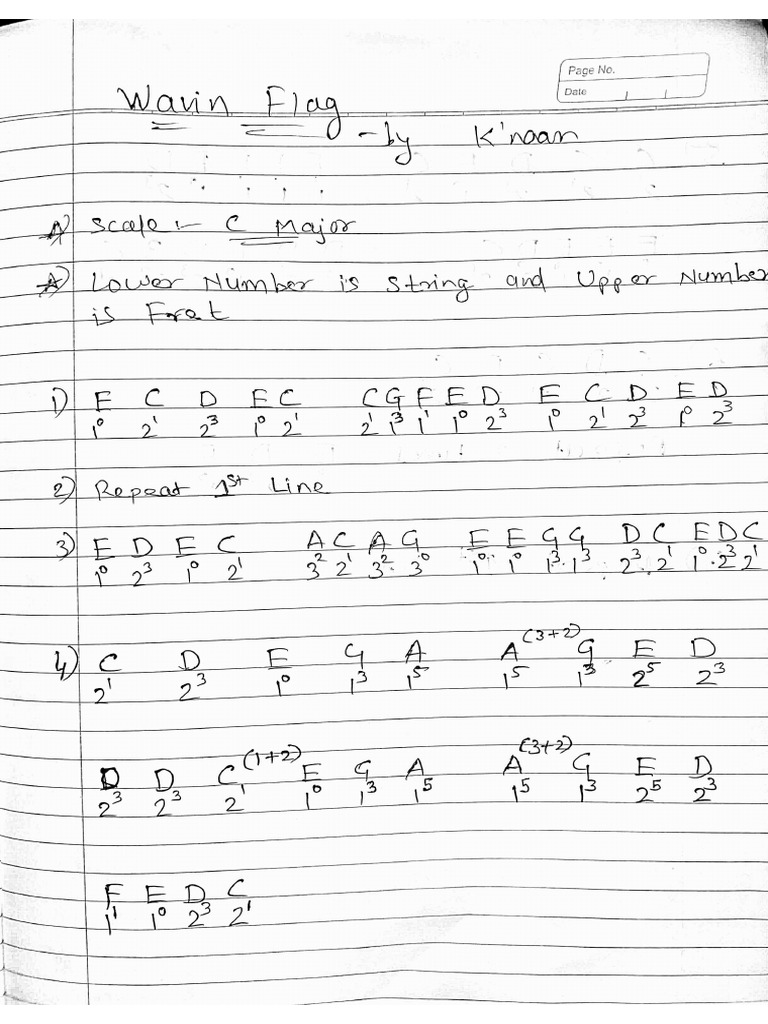 Page No.
Date
Wavin Flag
-by K'naan
Scale :- C Major
Lower Number is string and Upper Number
is Fret
1) E C D E C C G F E D E C D E D
1⁰ 2¹ 2³ 1⁰ 2¹ 2¹ 1³ 1¹ 1⁰ 2³ 1⁰ 2¹ 2³ 1⁰ 2³
2) Repeat 1st Line
3) E D E C A C A G E E G G D C E D C
1⁰ 2³ 1⁰ 2¹ 3² 2¹ 3² 3⁰ 1⁰ 1⁰ 1³ 1³ 2³ 2¹ 1⁰ 2³ 2¹
4) C D E G A A (3+2) G E D
2¹ 2³ 1⁰ 1³ 1⁵ 1⁵ 1³ 2⁵ 2³
D D C (1+2) E G A A (3+2) G E D
2³ 2³ 2¹ 1⁰ 1³ 1⁵ 1⁵ 1³ 2⁵ 2³
F E D C
1¹ 1⁰ 2³ 2¹